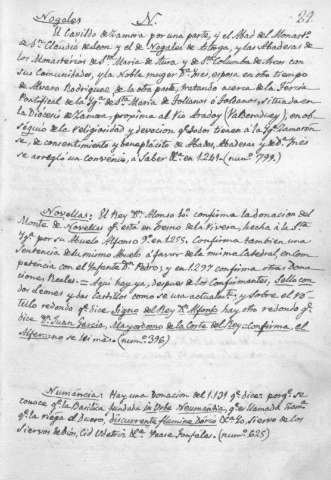 Nogales N. 29.
El Cavildo de Zamora por una parte, y el Abad del Monastº.
de Sn. Claudio de Leon y el de Nogales de Astorga, y las Abadesas de
los Monasterios de Sta. Maria de y de Sta. Columba de con
sus Comunidades, y la Noble muger Dª. Ines, esposa en otro tiempo
de Alvaro Rodriguez, de la otra parte, tratando acerca de la Tercia
Pontifical de la Ygª. de Sta. Maria de ó situada en
la Diocesi de Zamora, proxima al Rio (Valbenedrey), en ob-
sequio de la religiosidad y devocion qe. todos tienen á la Ygª. Zamoren-
se, de consentimiento y beneplacito de Abades, Abadesas y de Dª. Ines
se arregló un Convenio, á saber en 1241. (numº. 799.)
Novellas: El Rey Dn. Alonso 10º. confirma la donacion del
Monte de Novellas qe. está en termo. de la Rivera, hecha á la Sta.
Ygª. por su Abuelo Alfonso 9º. en 1255. Confirma tambien una
Sentencia de su mismo Abuelo á favor de la misma catedral, en com-
petencia con el Ynfante Dn. Pedro; y en 1297 confirma otras Dona-
ciones Reales. = Aqui hay ya, despues de los Confirmantes, Sello con
dos Leones y dos Castillos como se usa actualmte. y sobre el ró-
tulo redondo qe. dice Signo del Rey Dn. Alfonso hay otro redondo qe.
dice Dn. Juan Garcia, Mayordomo de la Corte del Rey = confirma, el
Alferez no se lee mas. (numº. 396)
Numancia: Hay una Donacion del 1131 qe. dice: porqe. se
conoce qe. la Basilica fundata in Urbe Neumantia, qe. es llamada Zamª.
qe. la riega el Duero, discurrente flumine Dorio Dn. Yo, Siervo de los
Siervos de Dios, Cid (numº. 625)